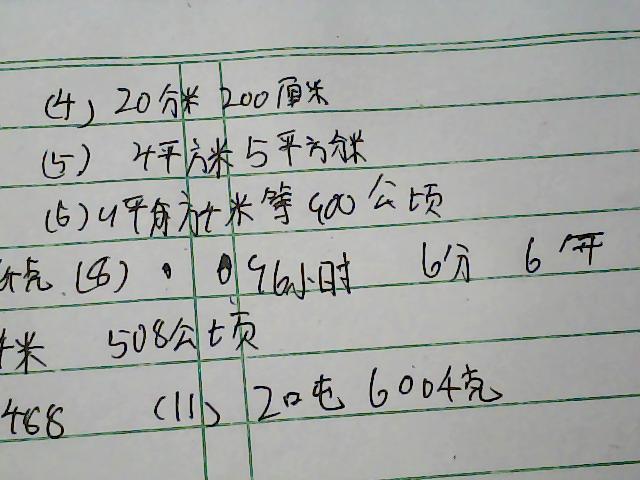 (4) 20分米 200厘米
(5) 4平方米 5平方分米
(6) 4平方千米等400公顷
千克 (8) 96小时 6分 6
千米 508公顷
468 (11) 20吨 6004克